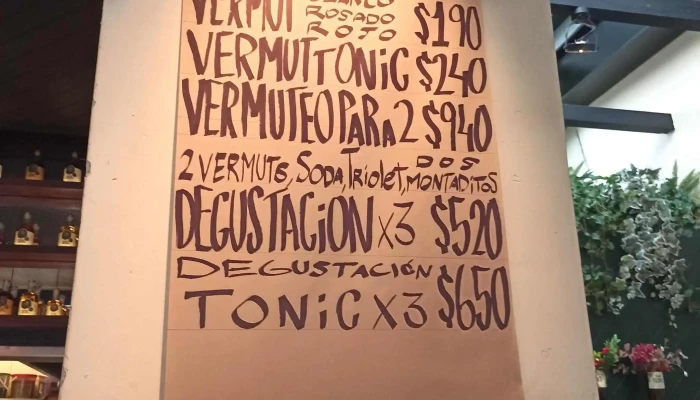 VERMUT BLANCO ROSADO ROJO $190
VERMUT TONiC $240
VERMUTEO PARA 2 $940
2 VERMUTS, SODA, TRiolet, DOS MONTADITOS
DEGUSTACiON x3 $520
DEGUSTACIÓN
TONiC X3 $650